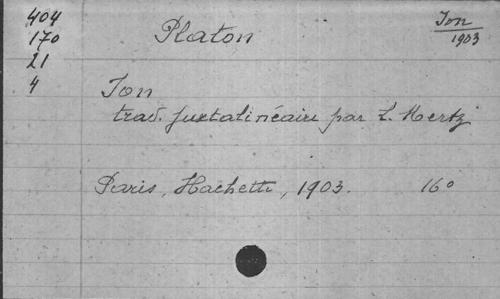 404
170
21
4
Platon
Ion
1903
Ion
trad. juxtalinéaire par L. Mertz
Paris, Hachette, 1903. 16°